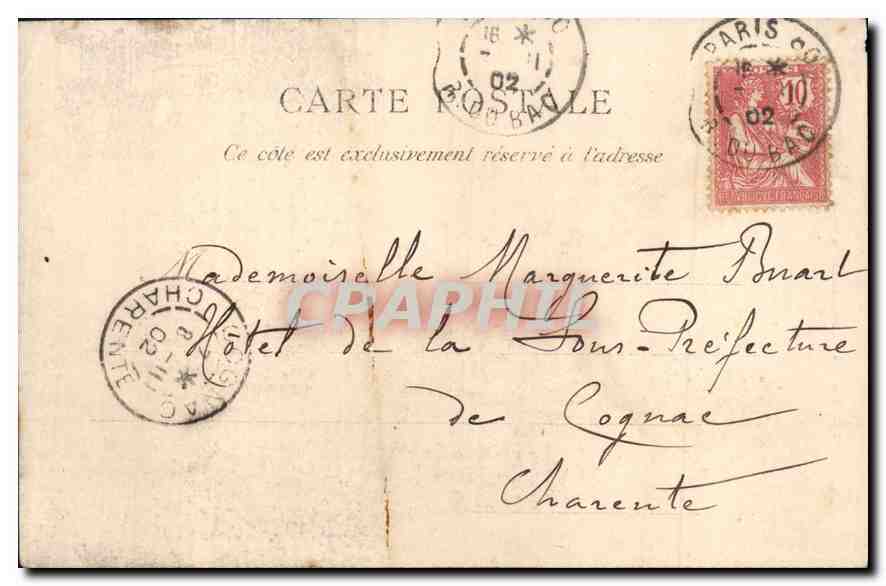 16 *
7 II
02
R. DU BAC
PARIS
16 *
02
R. DU BAC
10
REPUBLIQUE FRANÇAISE
CARTE POSTALE
Ce côté est exclusivement réservé à l'adresse
Mademoiselle Marguerite
Hôtel de la Sous-Préfecture
de Cognac
Charente
COGNAC
8 - II *
02
CHARENTE
CPAPHIL